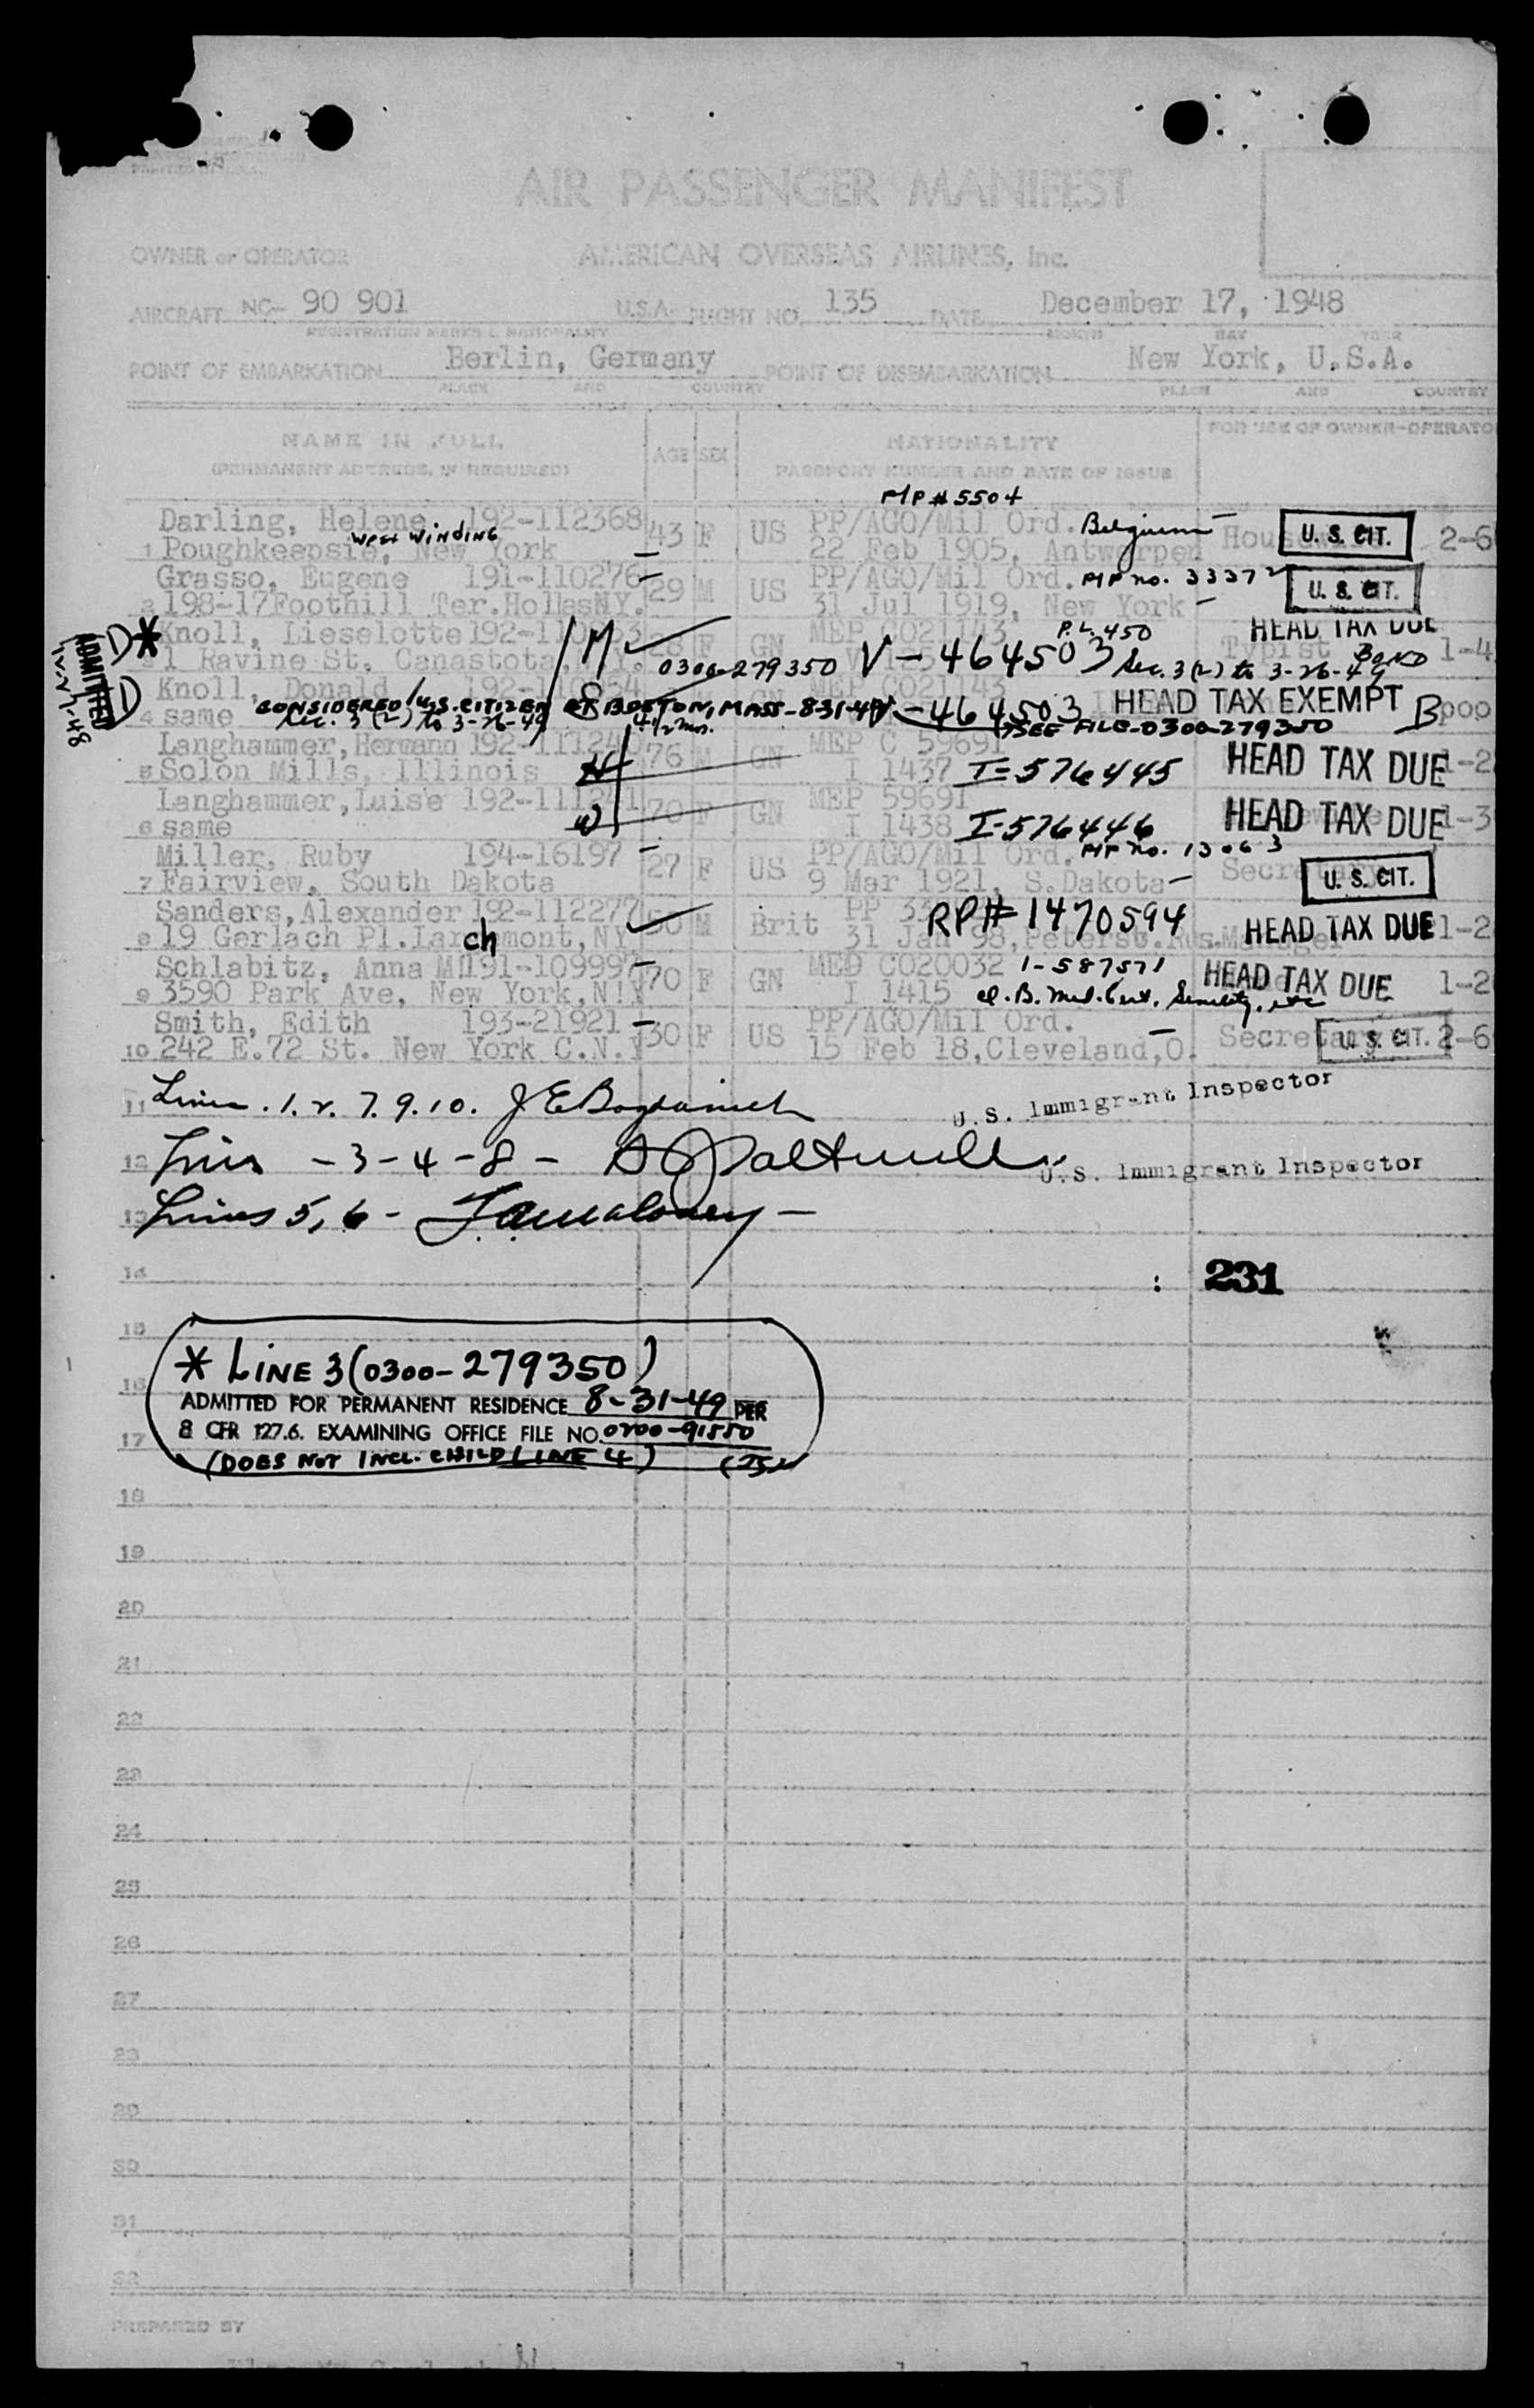 AIR PASSENGER MANIFEST
OWNER or OPERATOR AMERICAN OVERSEAS AIRLINES, Inc.
AIRCRAFT NC- 90 901 U.S.A. FLIGHT NO. 135 DATE December 17, 1948
REGISTRATION MARKS & NATIONALITY MONTH DAY YEAR
POINT OF EMBARKATION Berlin, Germany POINT OF DISEMBARKATION New York, U.S.A.
PLACE AND COUNTRY PLACE AND COUNTRY
NAME IN FULL AGE SEX NATIONALITY FOR USE OF OWNER-OPERATO
(PERMANENT ADDRESS, IF REQUIRED) PASSPORT NUMBER AND DATE OF ISSUE
MP # 5504
Darling, Helene 192-112368 43 F US PP/AGO/Mil Ord. Belgium U. S. CIT. 2-6
West Winding
1 Poughkeepsie, New York 22 Feb 1905, Antwerpen
Grasso, Eugene 191-110276 29 M US PP/AGO/Mil Ord. MP no. 33372 U. S. CIT.
2 198-17 Foothill Ter. Hollas NY. 31 Jul 1919, New York
* Knoll, Lieselotte 192- M F GN MEP CO21143 P.L. 450 HEAD TAX DUE
1 Ravine St, Canastota, 0300-279350 V-464503 Sec. 3(2) to 3-26-49 Bond Typist 1-4
ADMITTED
Knoll, Donald GN MEP CO21143 V-464503 HEAD TAX EXEMPT B pop
CONSIDERED U.S. CITIZEN AT BOSTON, MASS-8-31-49
4 same Sec. 3 (2) to 3-26-49 4 1/2 mos. SEE FILE-0300-279350
Langhammer, Hermann 192-111240 76 M GN MEP C 59691 HEAD TAX DUE 1-2
5 Solon Mills, Illinois H I 1437 I-576445
Langhammer, Luise 192-111241 70 F GN MEP 59691 HEAD TAX DUE 1-3
6 same W I 1438 I-576446
Miller, Ruby 194-16197 27 F US PP/AGO/Mil Ord. MP no. 13063
7 Fairview, South Dakota 9 Mar 1921, S.Dakota U. S. CIT.
Sanders, Alexander 192-112277 M Brit PP RP# 1470594 HEAD TAX DUE 1-2
8 19 Gerlach Pl. Larchmont, NY 31 Jan 98, Peterst. Rus.
Schlabitz, Anna M 191-109997 70 F GN MED CO20032 1-587571 HEAD TAX DUE 1-2
9 3590 Park Ave, New York, N.Y I 1415 cl. B. Med. Cert. Senility, etc
Smith, Edith 193-21921 30 F US PP/AGO/Mil Ord. Secretary U. S. CIT. 2-6
10 242 E. 72 St. New York C.N.Y 15 Feb 18, Cleveland, O.
11 Lines. 1. 2. 7. 9. 10. U.S. Immigrant Inspector
12 Lines - 3 - 4 - 8 - U.S. Immigrant Inspector
13 Lines 5, 6 -
14 231
15
* LINE 3 (0300-279350)
16 ADMITTED FOR PERMANENT RESIDENCE 8-31-49 PER
17 8 CFR 127.6. EXAMINING OFFICE FILE NO.
(DOES NOT INCL. CHILD LINE 4)
18
19
20
21
22
23
24
25
26
27
28
29
30
31
32
PREPARED BY